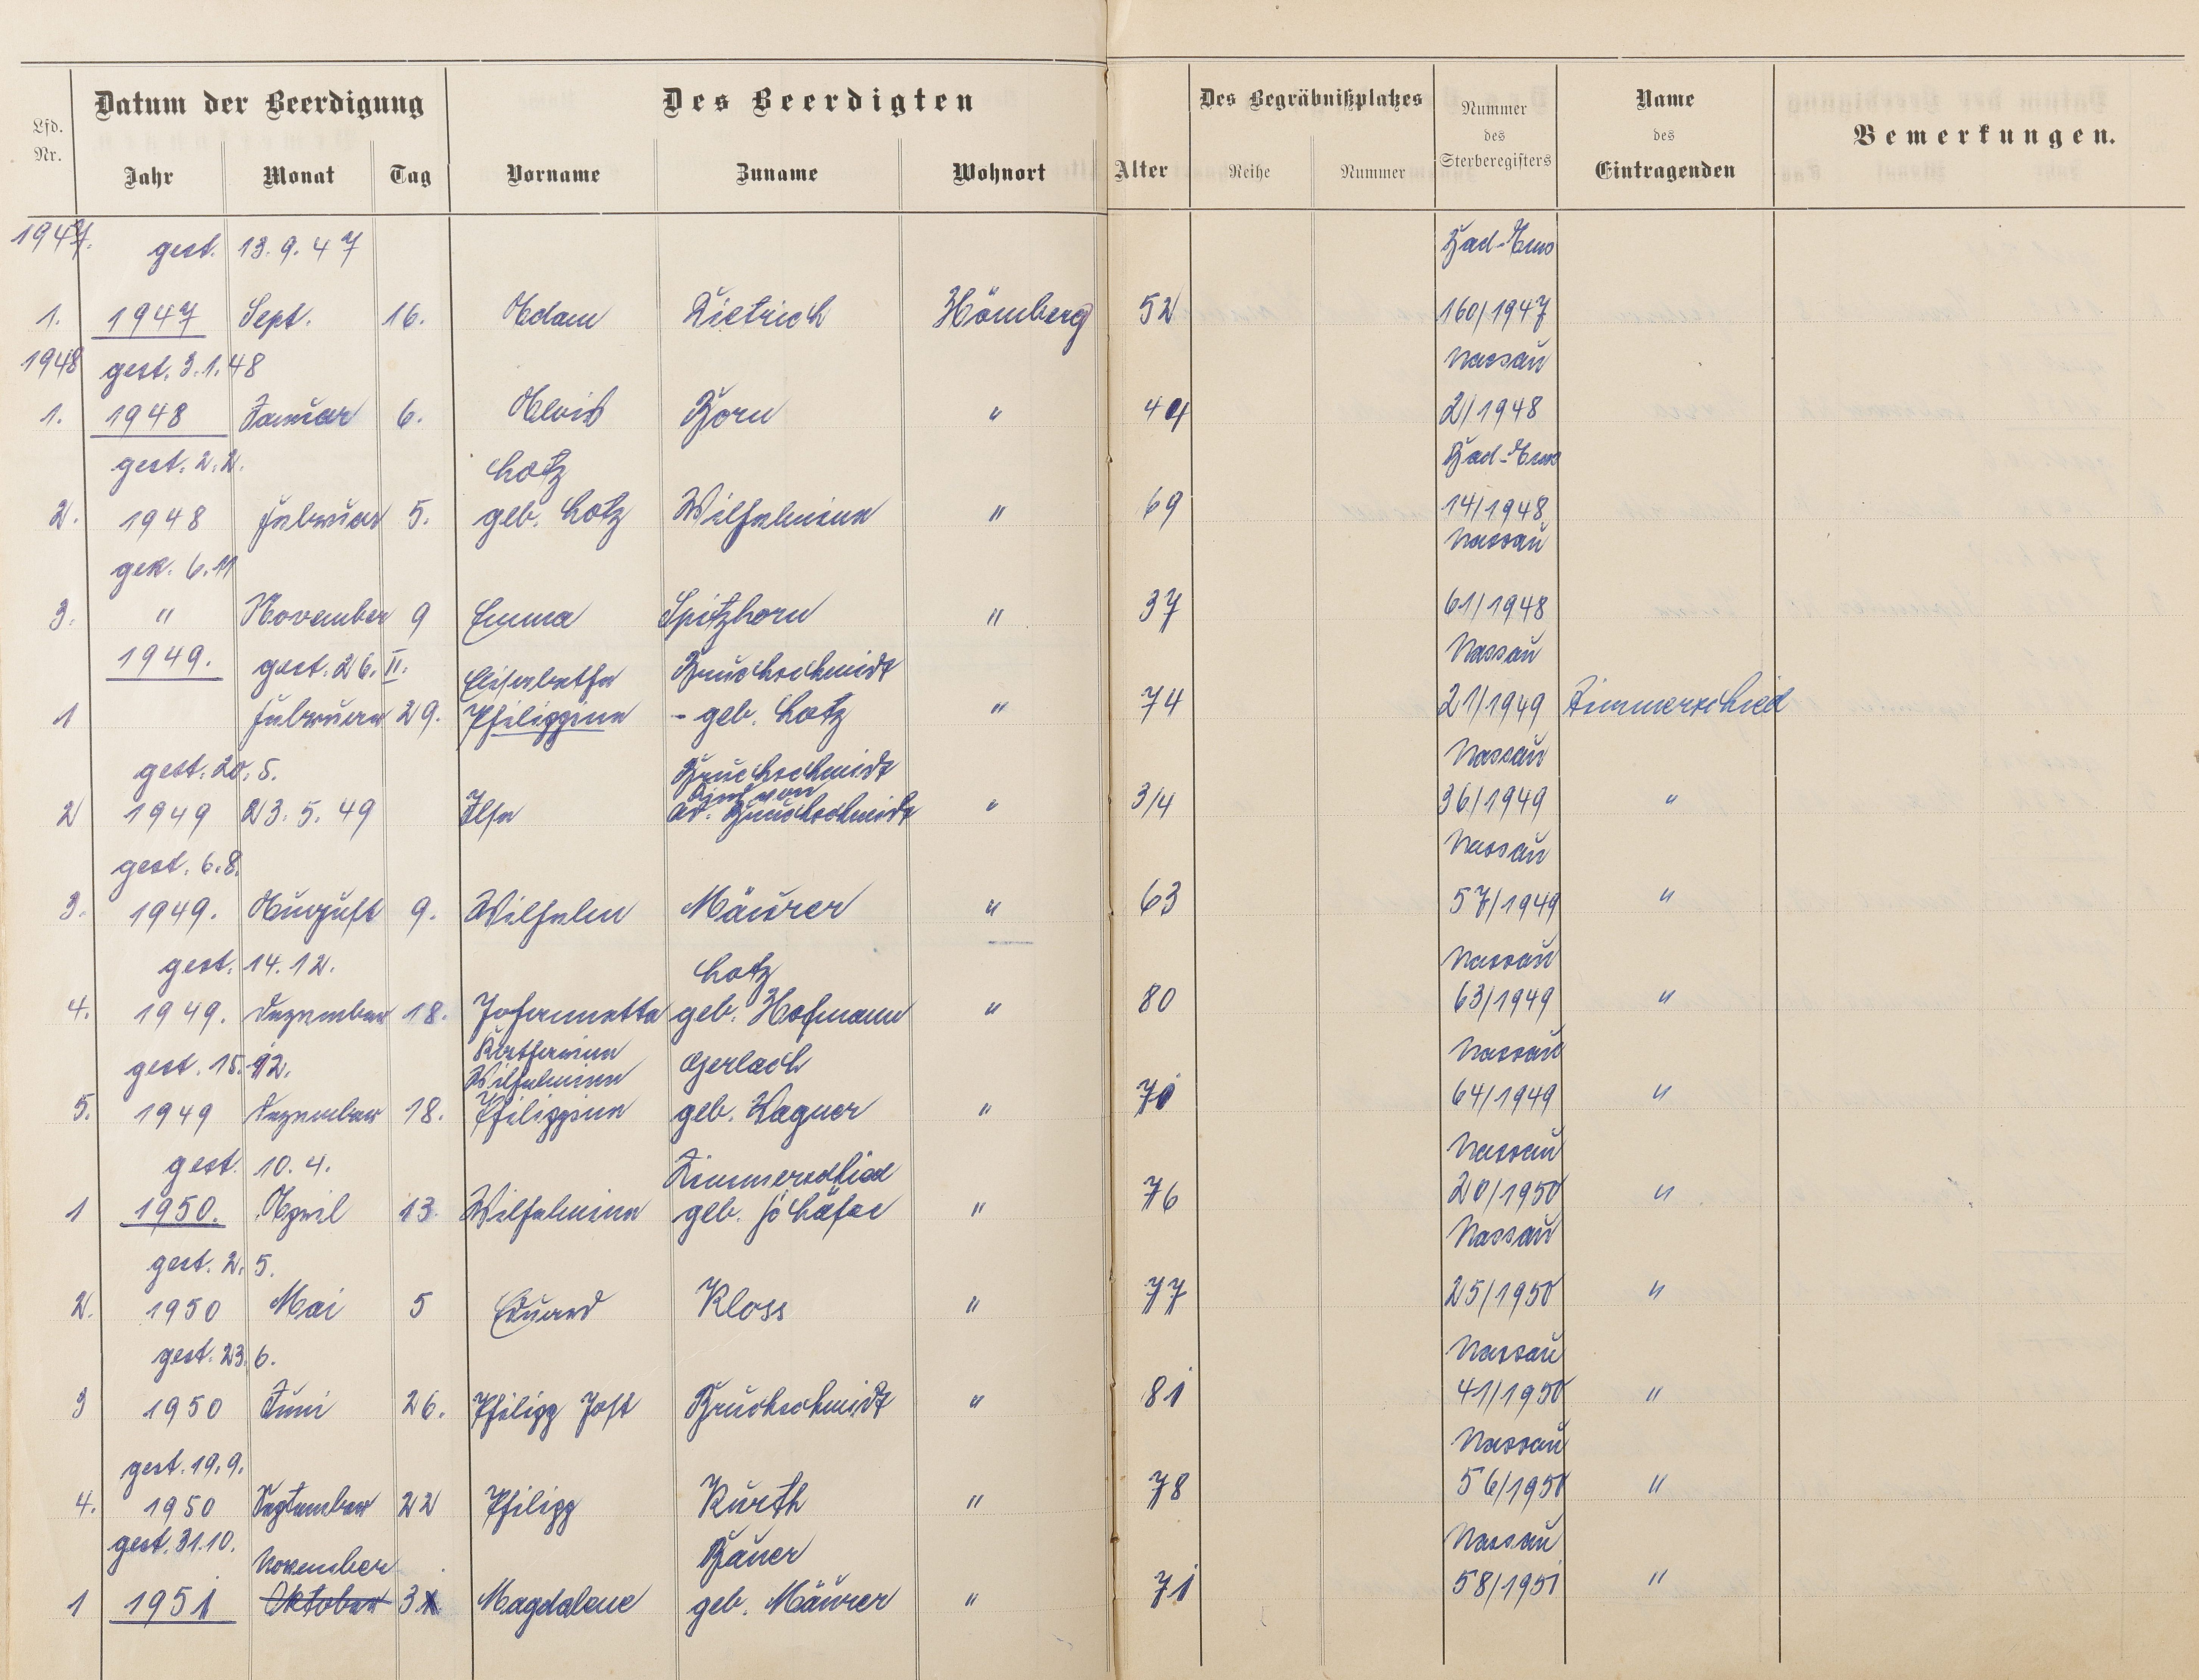 Datum der Beerdigung Des Beerdigten Des Begräbnißplatzes Nummer des Sterberegisters Name des Eintragenden Bemerkungen.
Lfd. Nr. Jahr Monat Tag Vorname Zuname Wohnort Alter Reihe Nummer
1947. gest. 13. 9. 47 Bad-Ems
1. 1947 Sept. 16. Adam Dietrich Hömberg 52 160/1947
1948 gest. 3. 1. 48 Nassau
1. 1948 Januar 6. Alois Born " 44 2/1948
gest. 2. 2. Lotz Bad-Ems
2. 1948 Februar 5. geb. Lotz Wilhelmine " 69 14/1948
gest. 6. 11 Nassau
3. " November 9 Emma Spitzhorn " 37 61/1948
1949. gest. 26. II. Elisabethe Bruchschmidt Nassau
1 Februar 29. Philippine - geb. Lotz " 74 21/1949 Zimmerschied
gest. 20. 5. Bruchschmidt Nassau
Kind von
2 1949 23. 5. 49 Ilse Ad. Bruchschmidt " 3/4 36/1949 "
gest. 6. 8. Nassau
3. 1949. August 9. Wilhelm Mäurer " 63 57/1949 "
gest. 14. 12. Lotz Nassau
4. 1949. Dezember 18. Johannette geb. Hofmann " 80 63/1949 "
Katharine
gest. 15. 12. Wilhelmine Gerlach Nassau
5. 1949 Dezember 18. Philippine geb. Wagner " 71 64/1949 "
gest. 10. 4. Zimmerschied Nassau
1 1950. April 13. Wilhelmine geb. Schäfer " 76 20/1950 "
gest. 2. 5. Nassau
2. 1950 Mai 5 Eduard Kloss " 77 25/1950 "
gest. 23. 6. Nassau
3 1950 Juni 26. Philipp Jost Bruchschmidt " 81 41/1950 "
gest. 19. 9. Nassau
4. 1950 September 22 Philipp Kurth " 78 56/1950 "
gest. 31. 10. November Bauer Nassau
1 1951 Oktober 3 Magdalene geb. Mäurer " 71 58/1951 "